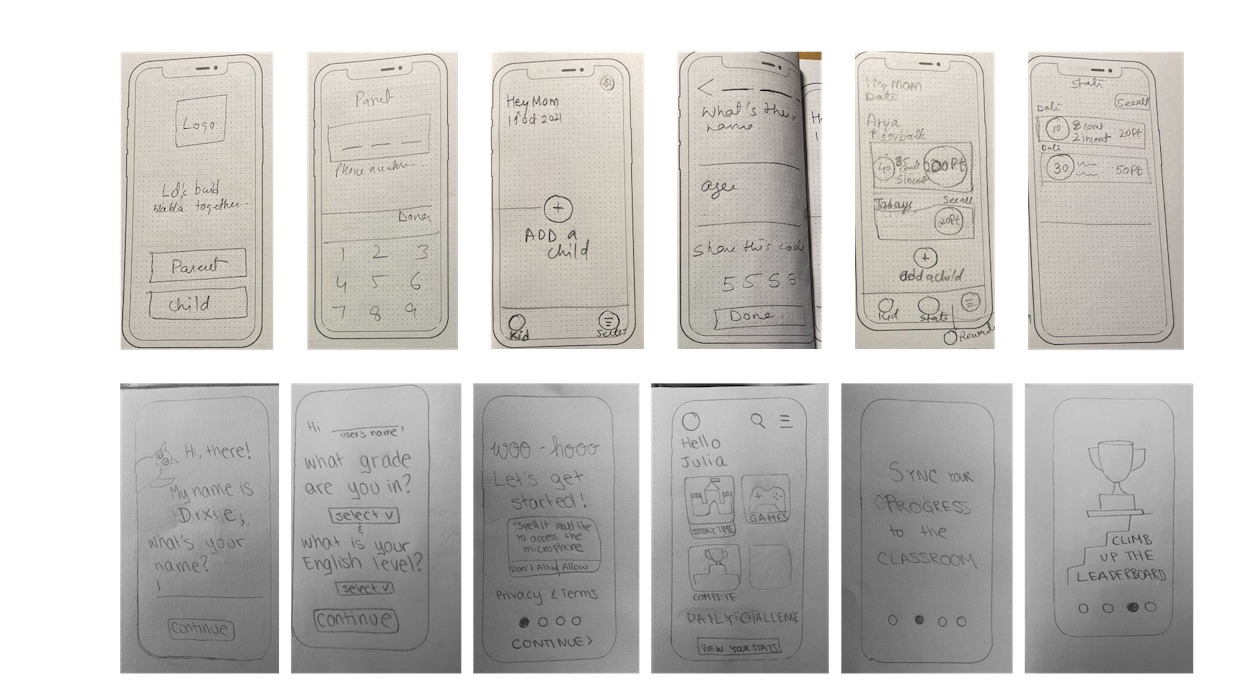 Logo
Let's build
together..
Parent
child
Phone number...
Done
1 2 3
4 5 6
7 8 9
Hey Mom
ADD a
child
Kid
What's their
name
age
Share this code
5 5 5 5
Done
Hey Mom
Date
Arya
40
200Pt
See all
20pt
add a child
Kid
Stats
See all
10
20pt
30
50pt
Hi, there!
My name is
Dixie,
what's your
name?
continue
Hi user's name,
what grade
are you in?
select v
&
what is your
English level?
select v
continue
woo-hooo
Let's get
started!
would like
to access the
microphone
Don't Allow Allow
Privacy & Terms
CONTINUE >
Hello
Julia
STORY TIME
GAMES
COMPETE
DAILY CHALLENGE
VIEW YOUR STATS
SYNC YOUR
PROGRESS
to the
CLASSROOM
CLIMB
UP THE
LEADERBOARD